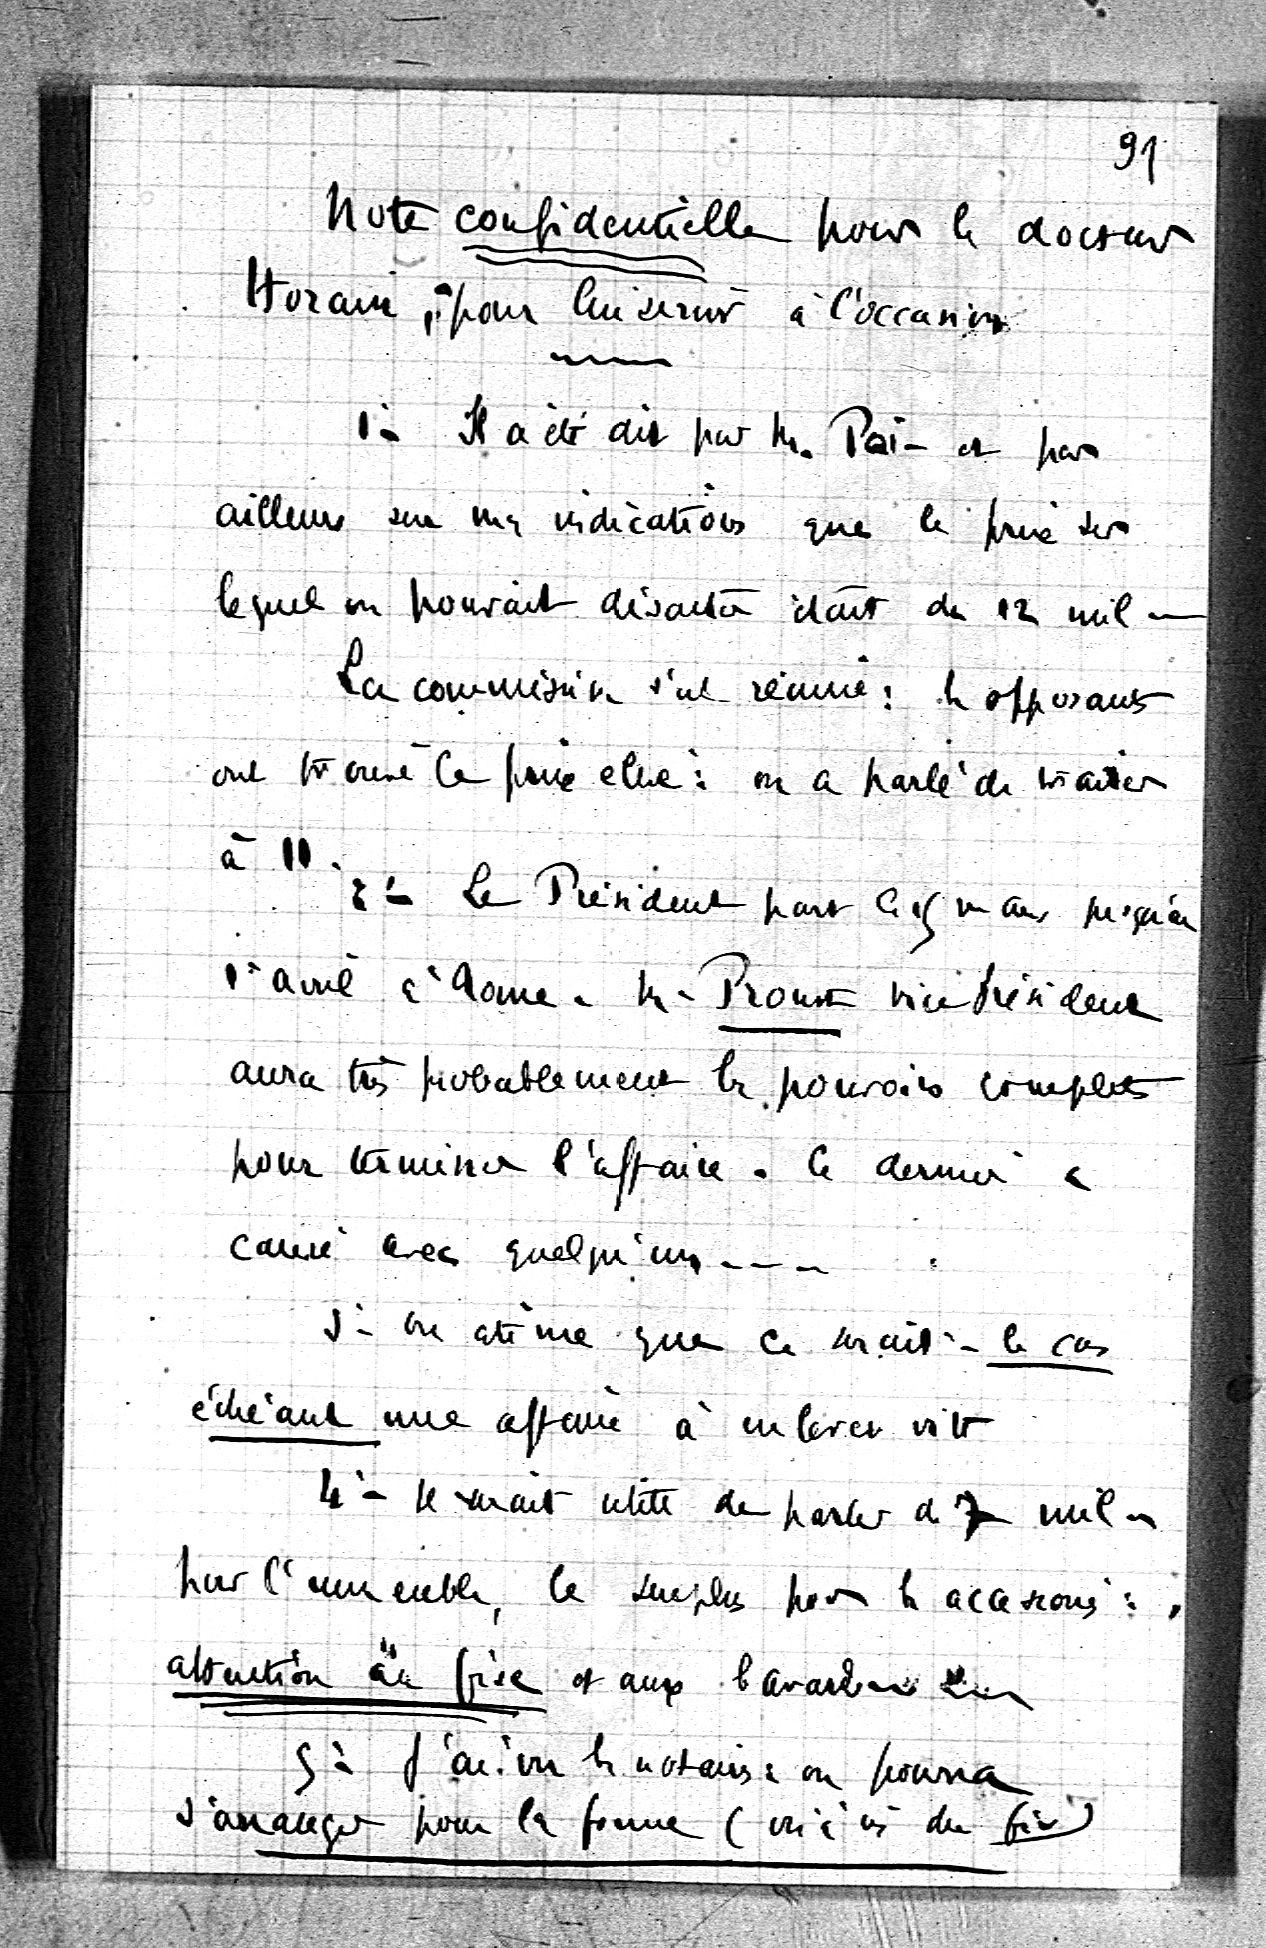 91
Note confidentielle pour le docteur
Horani, pour lui servir à l'occasion
1°- Il a été dit par M. Pai- et par
ailleurs sur mes indications que le prix sur
lequel on pouvait discuter était de 12 mil-
La commission s'est réunie : les opposants
ont trouvé ce prix élevé : on a parlé de traiter
à 11.
2°- Le Président part le 15 mars jusqu'au
1er avril à Rome. M. Proust vice président
aura très probablement les pouvoirs complets
pour terminer l'affaire. Ce dernier a
causé avec quelqu'un - - - -
3°- on estime que ce serait - le cas
échéant une affaire à enlever vite
4°- Il serait utile de parler de 7 mil-
pour l'immeuble, le surplus pour les accessoires :
attention au fisc et aux
5°- J'ai vu le notaire : on pourra
s'arranger pour la forme (vis à vis du fisc)